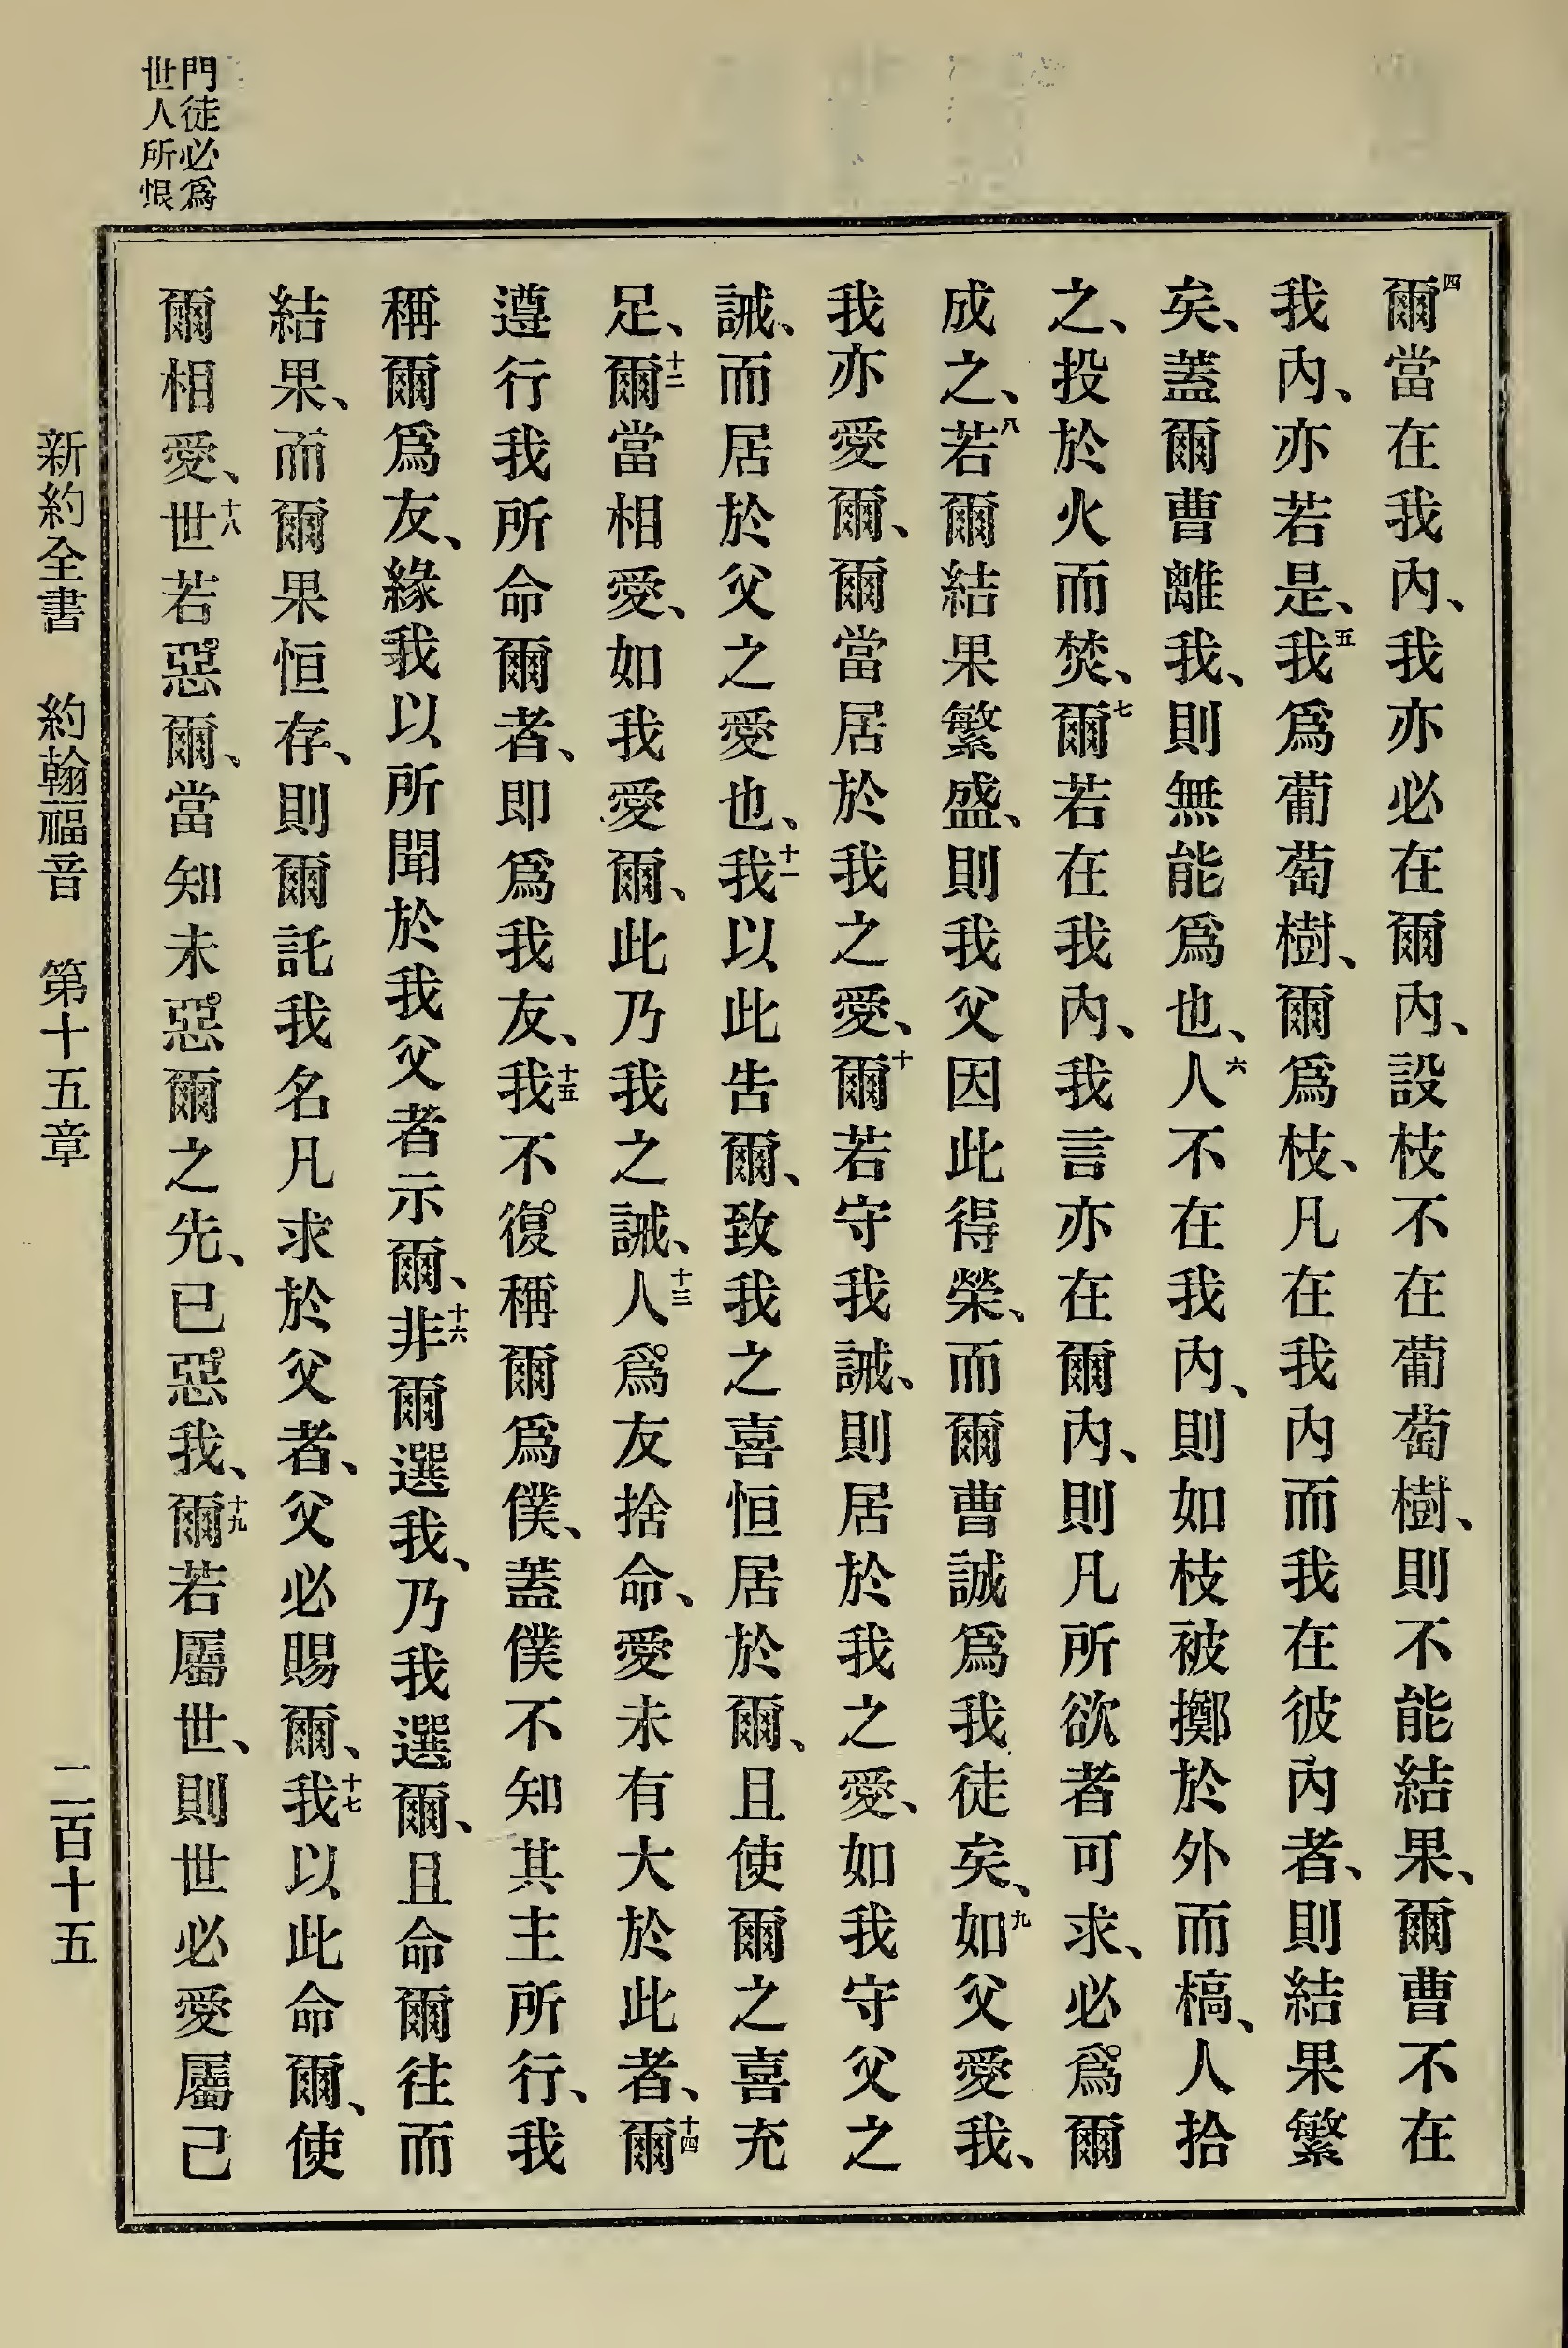 門徒必爲
世人所恨
四爾當在我內、我亦必在爾內、設枝不在葡萄樹、則不能結果、爾曹不在
我內、亦若是、五我爲葡萄樹、爾爲枝、凡在我內而我在彼內者、則結果繁
矣、蓋爾曹離我、則無能爲也、六人不在我內、則如枝被擲於外而槁、人拾
之、投於火而焚、七爾若在我內、我言亦在爾內、則凡所欲者可求、必爲爾
成之、八若爾結果繁盛、則我父因此得榮、而爾曹誠爲我徒矣、九如父愛我、
我亦愛爾、爾當居於我之愛、十爾若守我誡、則居於我之愛、如我守父之
誡、而居於父之愛也、十一我以此告爾、致我之喜恒居於爾、且使爾之喜充
足、十二爾當相愛、如我愛爾、此乃我之誡、十三人爲友捨命、愛未有大於此者、十四爾
遵行我所命爾者、即爲我友、十五我不復稱爾爲僕、蓋僕不知其主所行、我
稱爾爲友、緣我以所聞於我父者示爾、十六非爾選我、乃我選爾、且命爾往而
結果、而爾果恒存、則爾託我名凡求於父者、父必賜爾、十七我以此命爾、使
爾相愛、十八世若惡爾、當知未惡爾之先、已惡我、十九爾若屬世、則世必愛屬己
新約全書 約翰福音 第十五章 二百十五